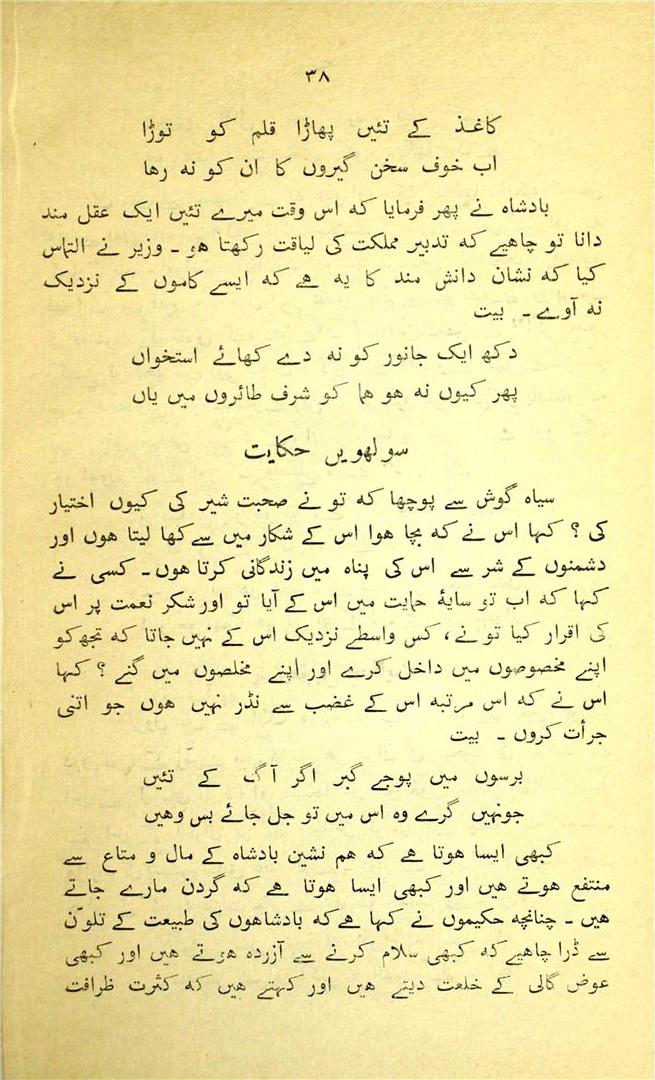 ۳۸
کاغذ کے تئیں پھاڑا قلم کو توڑا
اب خوف سخن گیروں کا ان کو نہ رھا
بادشاہ نے پھر فرمایا کہ اس وقت میرے تئیں ایک عقل مند
دانا تو چاھیے کہ تدبیر مملکت کی لیاقت رکھتا ھو ۔ وزیر نے التماس
کیا کہ نشان دانش مند کا یہ ھے کہ ایسے کاموں کے نزدیک
نہ آوے ۔ بیت
دکھ ایک جانور کو نہ دے کھائے استخواں
پھر کیوں نہ ھو ھما کو شرف طائروں میں یاں
سولھویں حکایت
سیاہ گوش سے پوچھا کہ تو نے صحبت شیر کی کیوں اختیار
کی ؟ کہا اس نے کہ بچا ھوا اس کے شکار میں سے کھا لیتا ھوں اور
دشمنوں کے شر سے اس کی پناہ میں زندگانی کرتا ھوں ۔ کسی نے
کہا کہ اب تو سایۂ حمایت میں اس کے آیا تو اور شکر نعمت پر اس
کی اقرار کیا تو نے ، کس واسطے نزدیک اس کے نہیں جاتا کہ تجھ کو
اپنے مخصوصوں میں داخل کرے اور اپنے مخلصوں میں گنے ؟ کہا
اس نے کہ اس مرتبہ اس کے غضب سے نڈر نہیں ھوں جو اتنی
جرأت کروں ۔ بیت
برسوں میں پوجے گبر اگر آگ کے تئیں
جونہیں گرے وہ اس میں تو جل جائے بس وھیں
کبھی ایسا ھوتا ھے کہ ھم نشین بادشاہ کے مال و متاع سے
منتفع ھوتے ھیں اور کبھی ایسا ھوتا ھے کہ گردن مارے جاتے
ھیں ۔ چنانچہ حکیموں نے کہا ھے کہ بادشاھوں کی طبیعت کے تلوّن
سے ڈرا چاھیے کہ کبھی سلام کرنے سے آزردہ ھوتے ھیں اور کبھی
عوض گالی کے خلعت دیتے ھیں اور کہتے ھیں کہ کثرت ظرافت